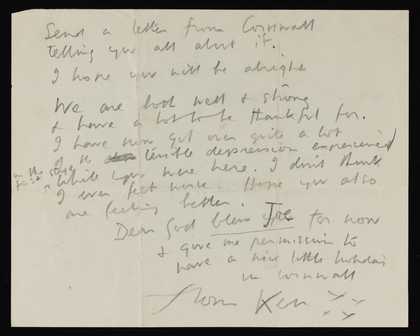 Send a letter from Cornwall
telling you all about it.
I hope you will be alright
We are both well & strong
& have a lot to be thankful for.
I have now got over quite a lot
of the terrible depression experienced
while you were here. I don't think
I ever felt worse. Hope you also
are feeling better.
Dear God bless Joe for now
& give me permission to
have a nice little holiday
in Cornwall
from Ken xxx